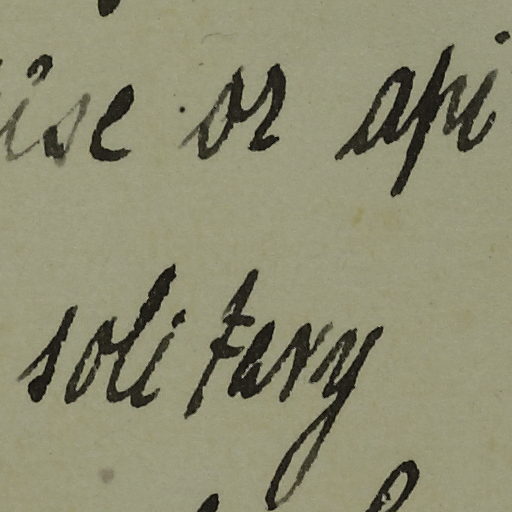 or api
solitary